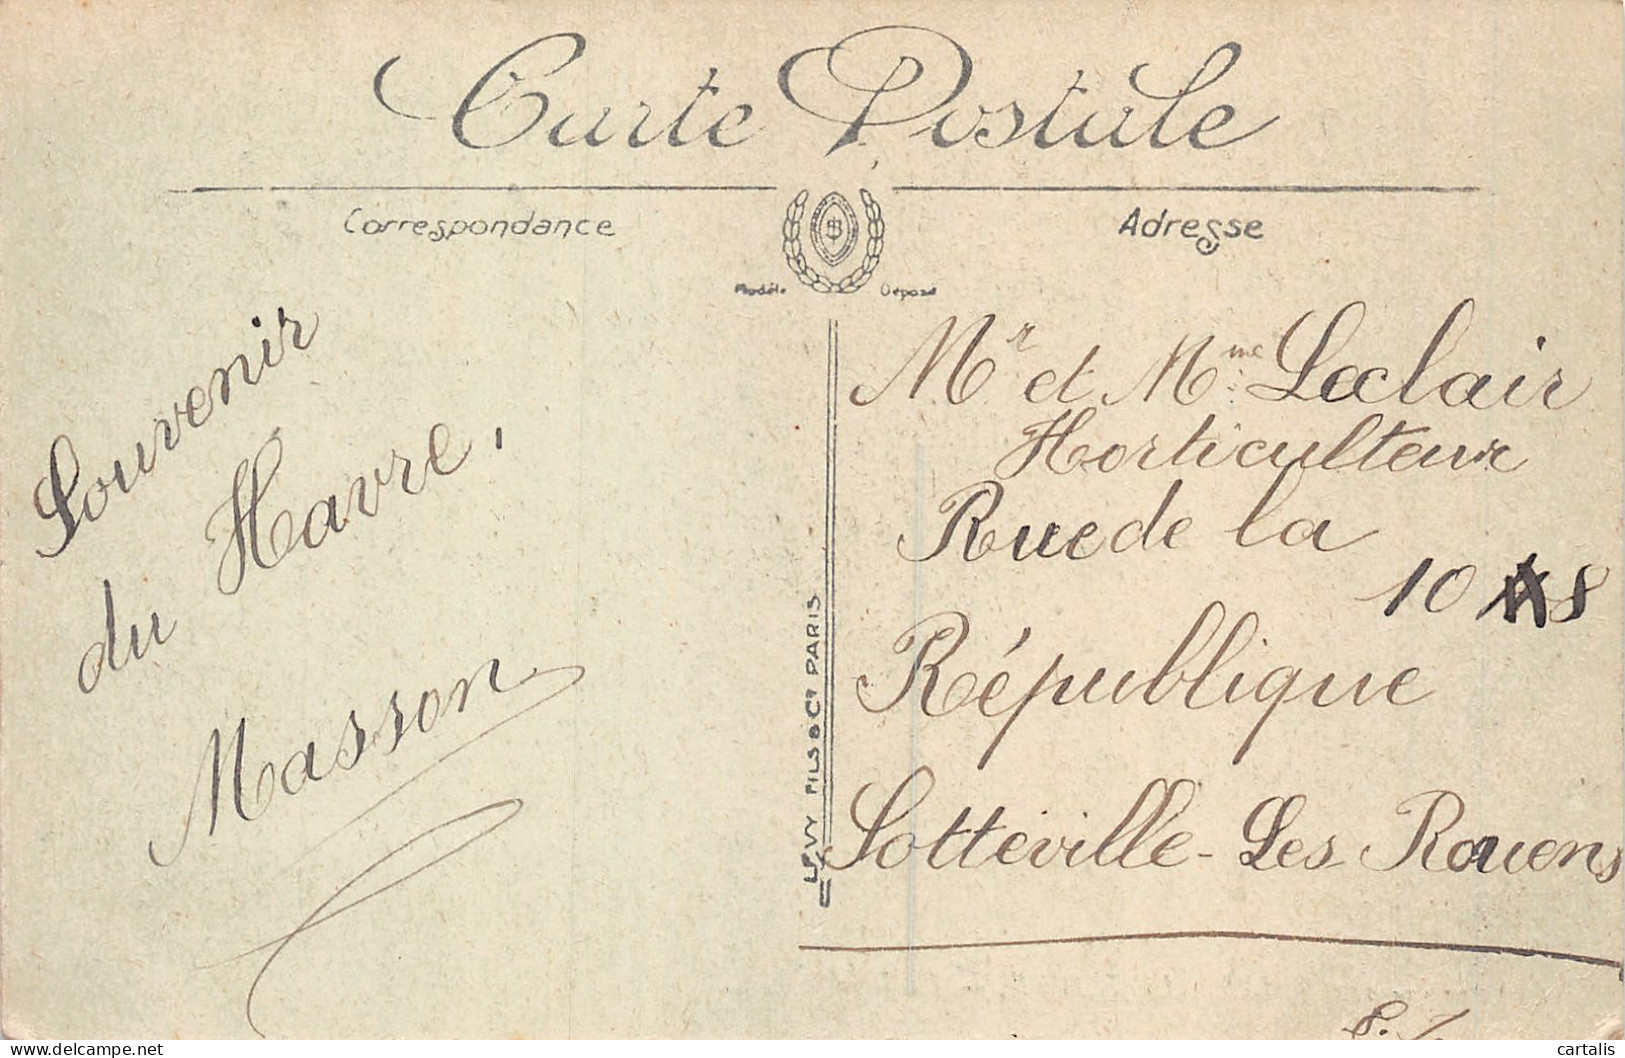 Carte Postale
Correspondance
Adresse
Modèle Déposé
Souvenir
du Havre,
Masson
LEVY FILS & Cie PARIS
Mr et Mme Leclair
Horticulteur
Rue de la
108
République
Sotteville-Les Rouens
cartalis